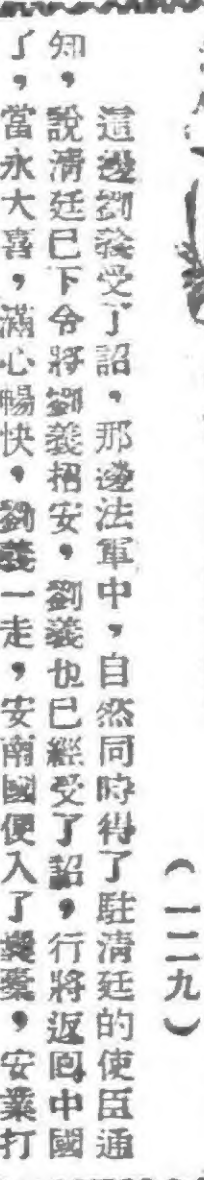 （一二九）
這邊劉義受了詔，那邊法軍中，自然同時得了駐清廷的使臣通
知，說清廷已下令將劉義招安，劉義也已經受了詔，行將返回中國
了，當永大喜，滿心暢快，劉義一走，安南國便入了囊橐，安業打